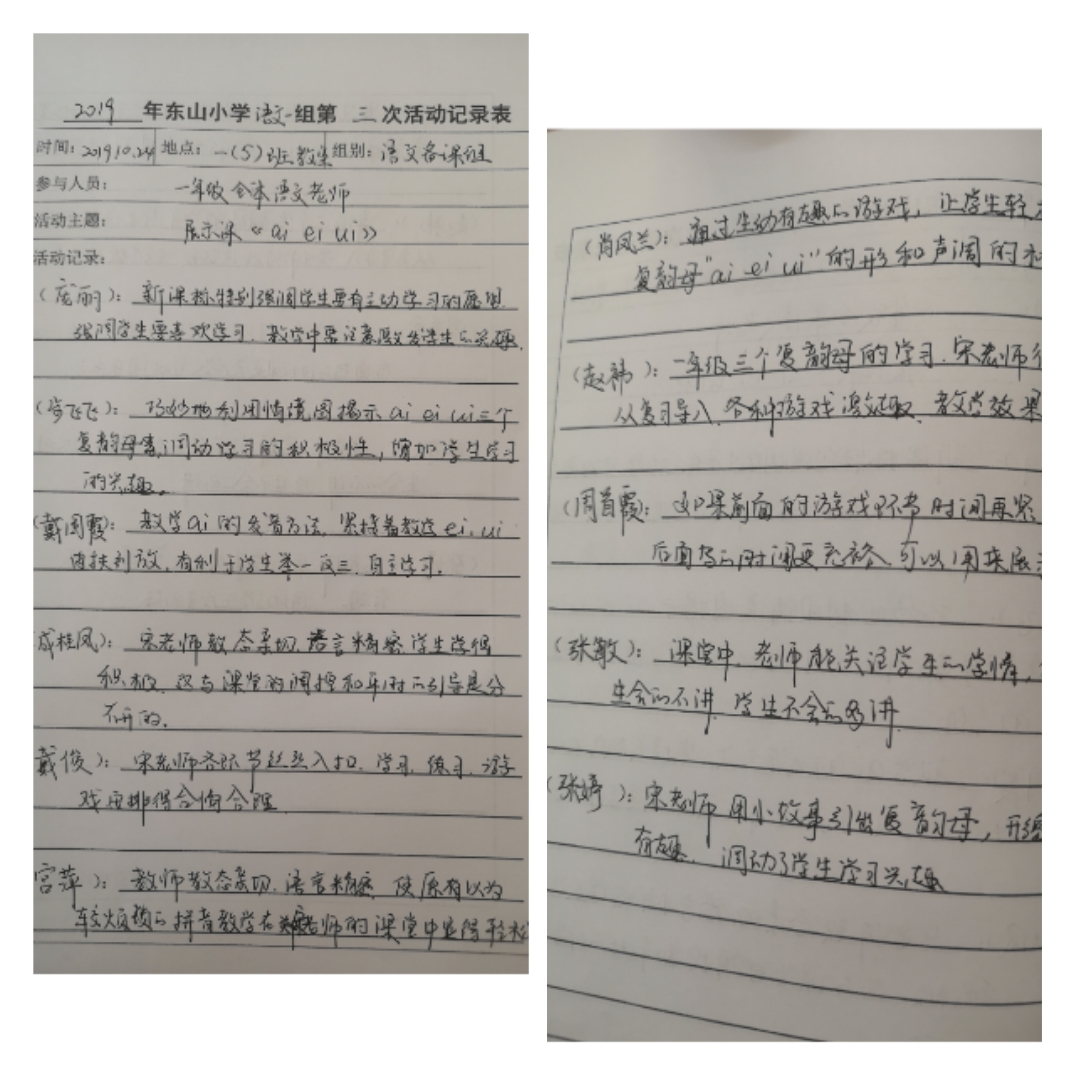 2019 年东山小学语文一组第 三 次活动记录表
时间: 2019.10.24 地点: 一(5)班教室 组别: 语文备课组
参与人员: 一年级全体语文老师
活动主题: 展示课《ai ei ui》
活动记录:
(庞丽): 新课标特别强调学生要有主动学习的愿望.
强调学生要喜欢学习. 教学中要注意激发学生的兴趣.
飞飞): 巧妙地利用情境图揭示 ai ei ui三个
复韵母 调动学习的积极性, 增加学生学习
的兴趣.
(戴国霞): 教学ai的发音方法. 紧接着教学ei. ui
由扶到放, 有利于学生举一反三. 自主学习.
成桂凤): 宋老师教态亲切. 语言精密 学生学得
积极. 这与课堂的调控和平时的引导是分
不开的.
戴俊): 宋老师各环节丝丝入扣. 学习. 练习. 游
戏安排得合情合理
宫萍): 教师教态亲切. 语言精密. 使原有以为
较烦琐的拼音教学在 老师的课堂中显得轻松
(肖凤兰): 通过生动有趣的游戏, 让学生轻
复韵母"ai ei ui"的形和声调的
(赵祎): 一年级三个复韵母的学习. 宋老师
从复习导入. 各种游戏激趣. 教学效果
(周首霞): 如果前面的游戏环节时间再紧
后面写的时间更充裕 可以用来展
(张敏): 课堂中. 老师能关注学生的学情,
生会的不讲. 学生不会的多讲
(张婷): 宋老师用小故事引出复韵母,
有趣. 调动了学生学习兴趣